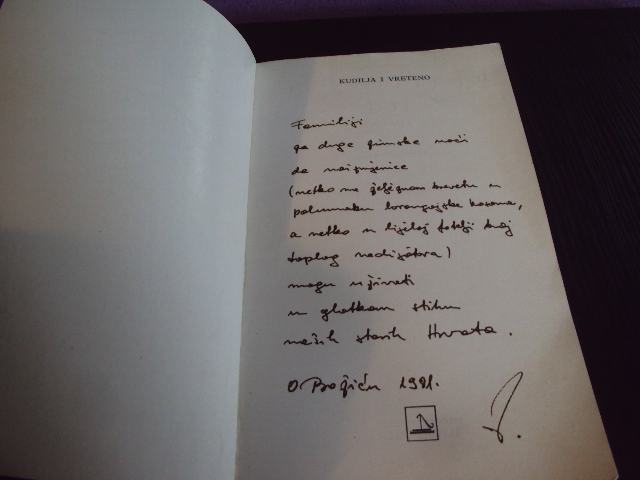 KUDILJA I VRETENO
Familiji
za duge zimske noći
da naizmjenice
(netko na željeznom krevetu u
polumraku lorenzijske kasarne,
a netko u bijeloj fotelji kraj
toplog radijatora)
mogu uživati
u glatkom stihu
naših starih Hrvata.
O Božiću 1981.